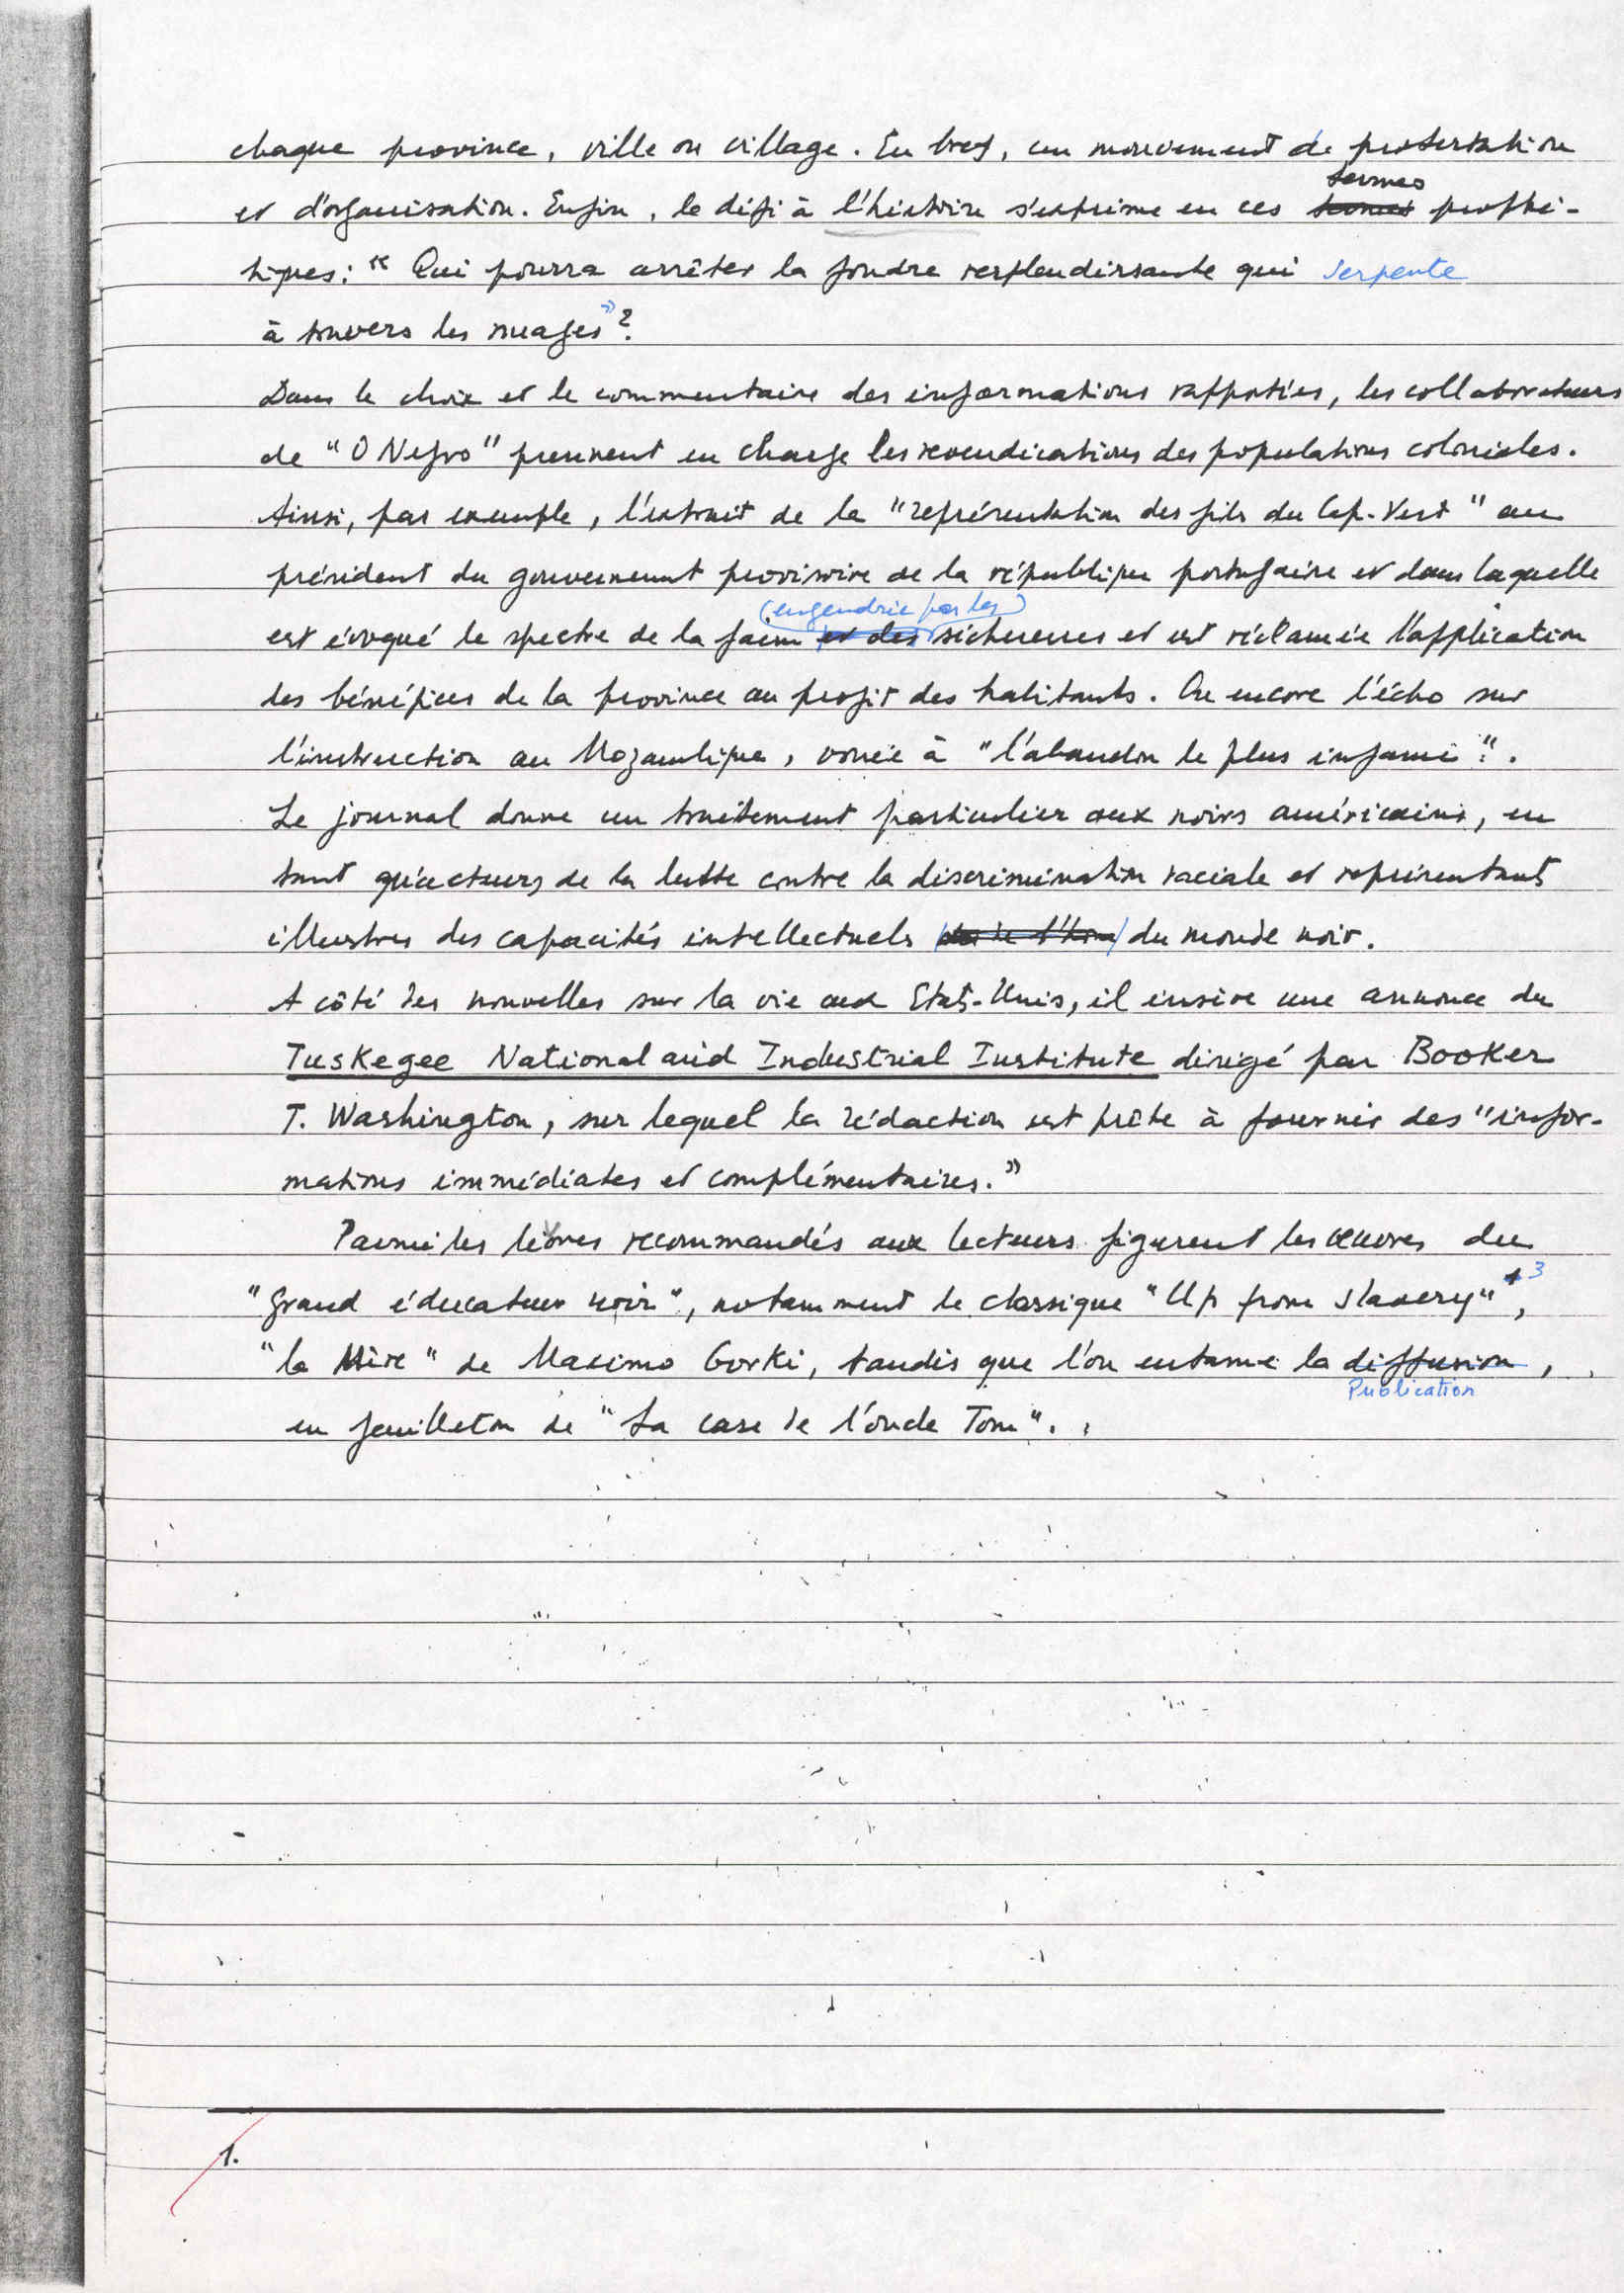 chaque province, ville ou village. En bref, un mouvement de protestation
et d'organisation. Enfin, le défi à l'histoire s'exprime en ces termes prophé-
tiques: “ Qui pourra arrêter la foudre resplendissante qui serpente
à travers les nuages”?
Dans le choix et le commentaire des informations rapportées, les collaborateurs
de “O Negro” prennent en charge les revendications des populations coloniales.
Ainsi, par exemple, l'extrait de la “représentation des fils du Cap-Vert” au
président du gouvernement provisoire de la république portugaise et dans laquelle
est évoqué le spectre de la faim (engendrée par les) sécheresses et est réclamée l'application
des bénéfices de la province au profit des habitants. Ou encore l'écho sur
l'instruction au Mozambique, vouée à “l'abandon le plus infame”.
Le journal donne un traitement particulier aux noirs américains, en
tant qu'acteurs de la lutte contre la discrimination raciale et représentants
illustres des capacités intellectuels du monde noir.
A côté des nouvelles sur la vie aux Etats-Unis, il insère une annonce du
Tuskegee National and Industrial Institute dirigé par Booker
T. Washington, sur lequel la rédaction est prête à fournir des “infor-
mations immédiates et complémentaires.”
Parmi les livres recommandés aux lecteurs figurent les œuvres du
“grand éducateur noir”, notamment le classique “Up from slavery” 3,
“la Mère” de Maximo Gorki, tandis que l'on entame la publication,
en feuilleton de “La case de l'oncle Tom”.
1.